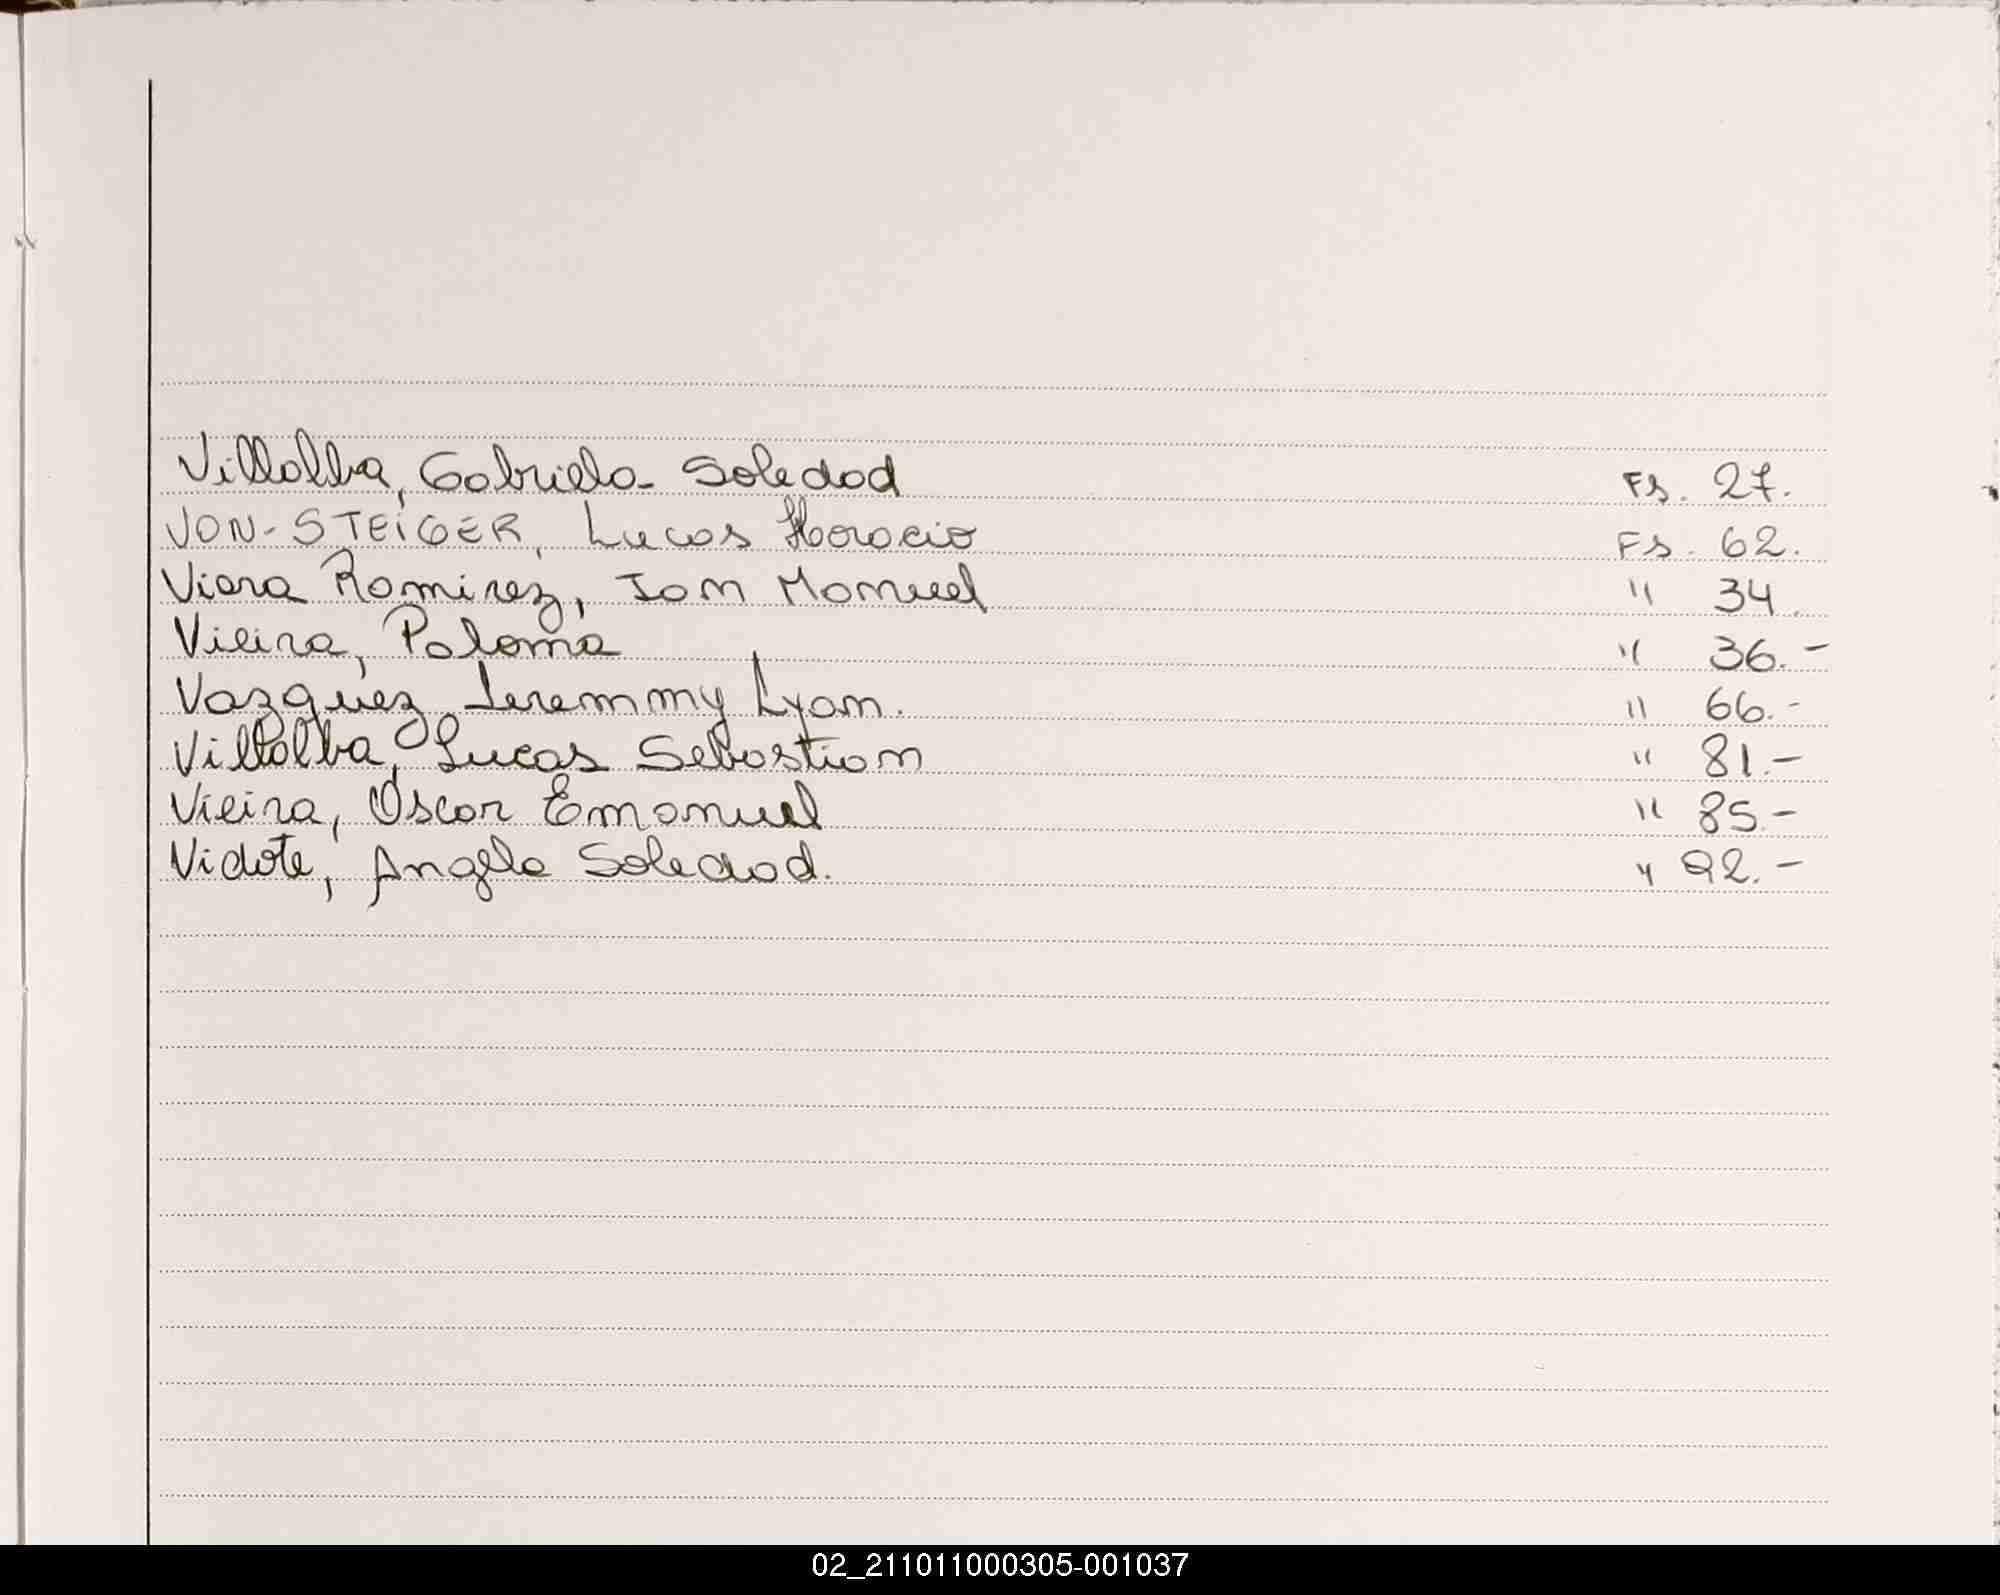 Villalba, Gabriela Soledad Fs. 27.
VON-STEIGER, Lucas Horacio Fs. 62.
Viera Ramirez, Ian Manuel " 34.
Vieira, Paloma " 36.-
Vazquez, Jeremmy Lyan. " 66.-
Villalba, Lucas Sebastian " 81.-
Vieira, Oscar Emanuel " 85.-
Vidote, Angela Soledad. " 92.-
02_211011000305-001037